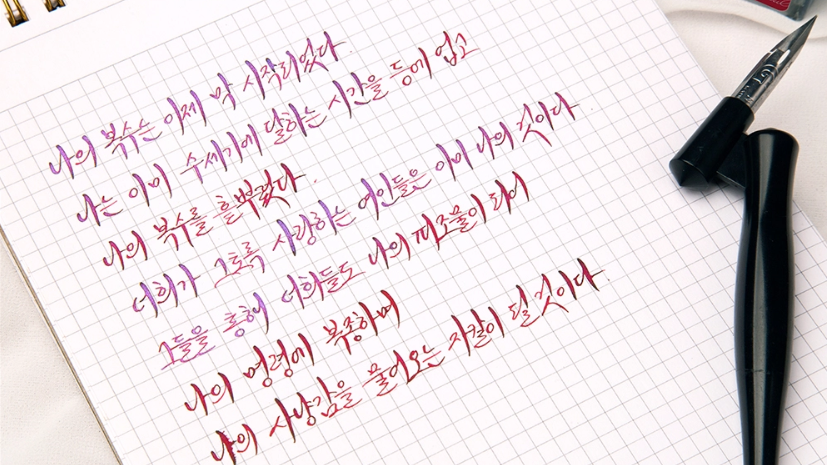 나의 복수는 이제 막 시작되었다.
나는 이미 수세기에 달하는 시간을 등에 업고
나의 복수를 흩뿌렸다.
너희가 그토록 사랑하는 여인들은 이미 나의 것이다.
그들을 통해 너희들도 나의 피조물이 되어
나의 명령에 복종하며
나의 사냥감을 물어오는 자칼이 될 것이다.